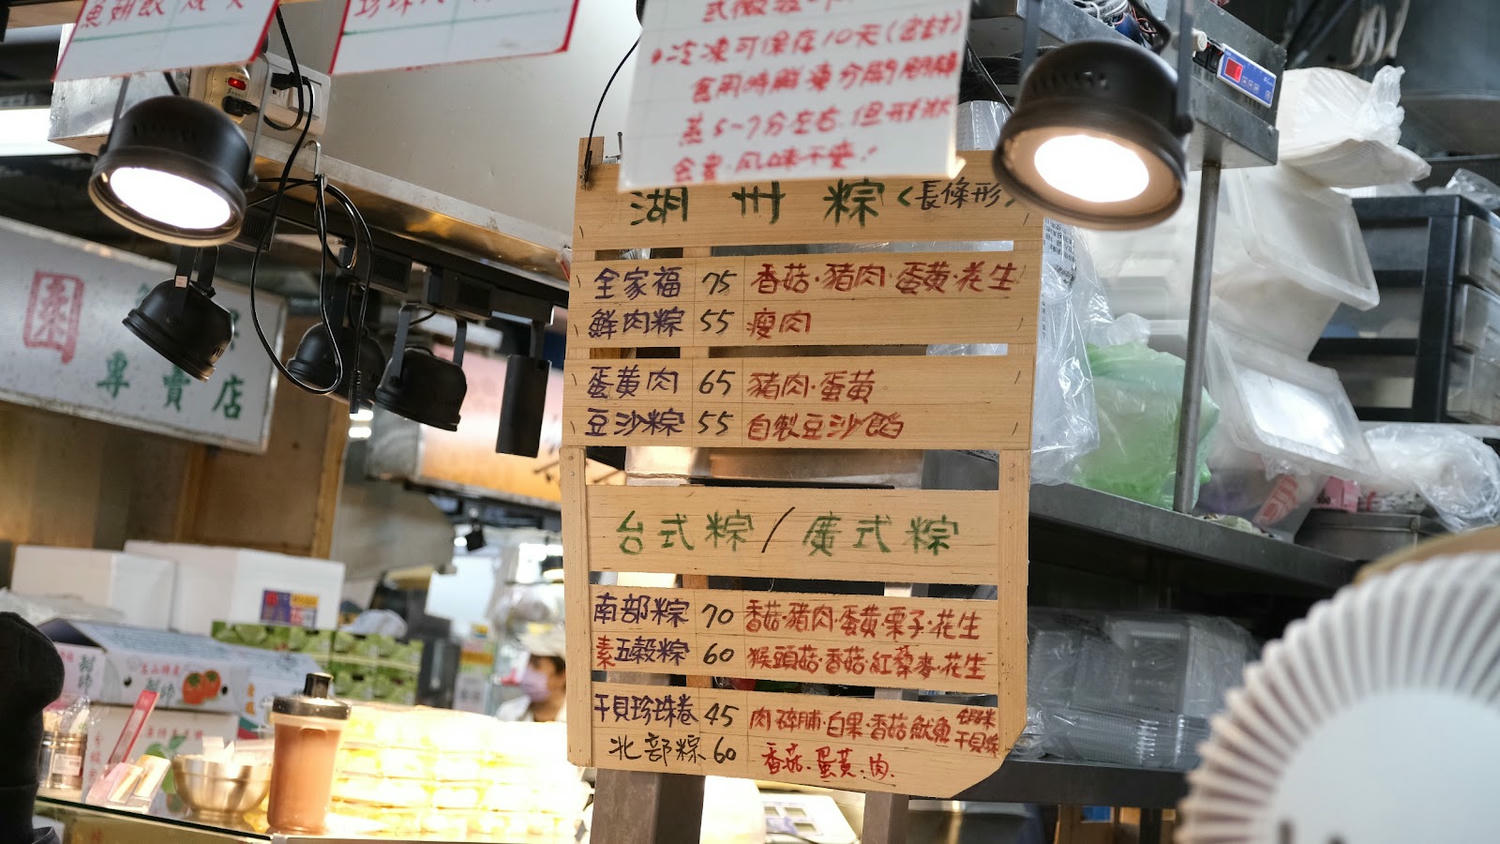 •冷凍可保存10天(密封)
食用時解凍分開用電鍋
蒸5-7分左右.但形狀
會書.風味不變!
湖州粽<長條形>
全家福 75 香菇·豬肉·蛋黃·花生
鮮肉粽 55 瘦肉
蛋黃肉 65 豬肉·蛋黃
豆沙粽 55 自製豆沙餡
台式粽/廣式粽
南部粽 70 香菇·豬肉·蛋黃·栗子·花生
素五穀粽 60 猴頭菇·香菇·紅藜麥·花生
干貝珍珠卷 45 肉碎脯·白果·香菇·魷魚 蝦米 干貝絲
北部粽 60 香菇.蛋黃.肉.
專賣店